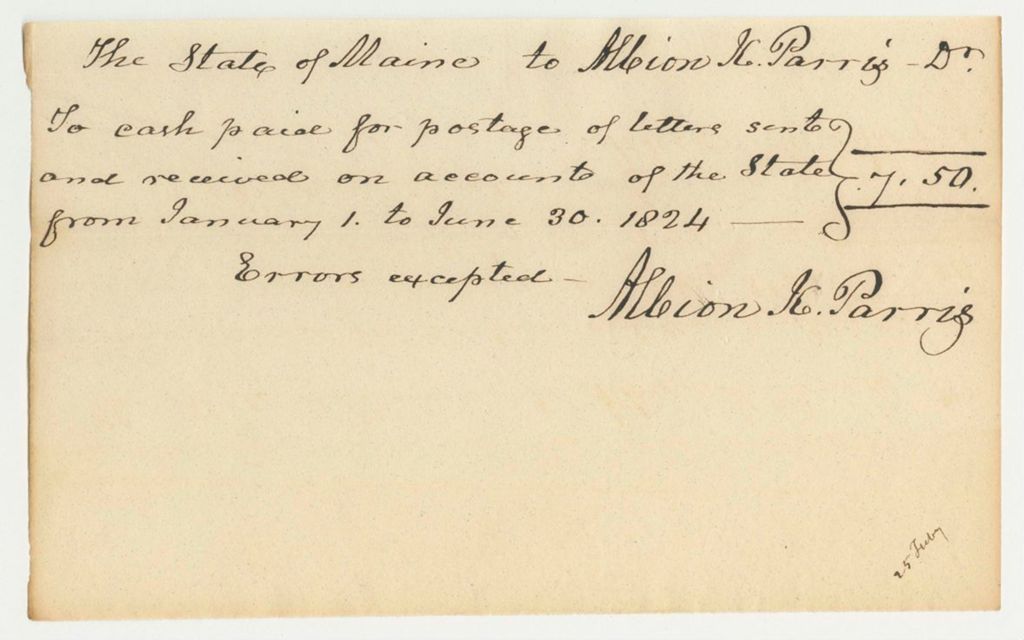 The State of Maine to Albion K. Parris - Dr.
To cash paid for postage of letters sent
and received on account of the State 7. 50.
from January 1. to June 30. 1824 —
Errors excepted —
Albion K. Parris
25